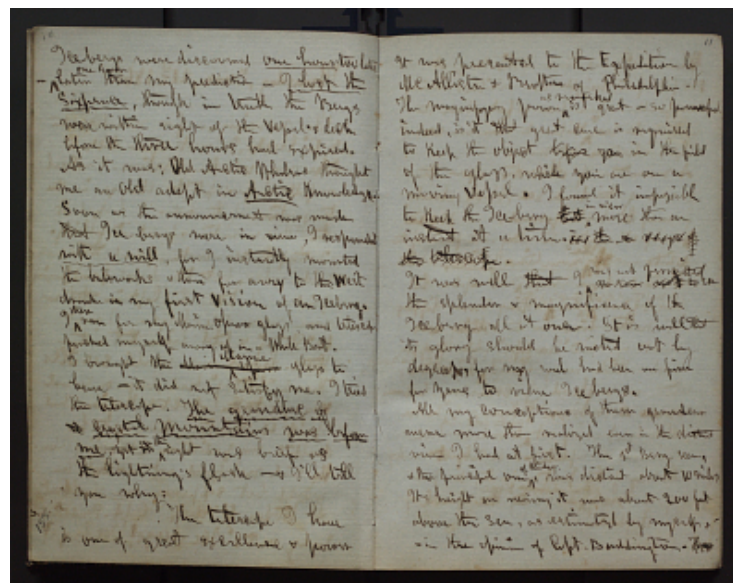 10
Icebergs were discovered one hour too late
- one hour
later than my prediction - I lost the
Sixpence, though in truth the Bergs
were within sight of the Vessel's deck
before the three hours had expired.
As it was; Old Arctic Whalers thought
me an old adept in Arctic Knowledge.
Soon as the announcement was made
that Ice bergs were in view, I responded
with a will, for I instantly mounted
the bulwarks when far away to the West
stood in my first Vision of an Iceberg.
I then ran for my opera glass and
myself away in a Whale Boat.
I brought the glass to
bear - it did not satisfy me. I tried
the telescope. The grandeur of
crystal mountains was before
me, yet the sight was brief as
the lightning's flash - & I'll tell
you why:
The telescope I have
is one of great excellence & power
11
It was presented to the Expedition by
McAllister & Brothers of Philadelphia.
The magnifying power is great - so powerful
indeed, is it that great care is required
to keep the object before you in the field
of the glass, while you are on a
moving Vessel. I found it impossible
to keep the Iceberg in view more than an
instant at a time
the telescope.
It was well that I was not permitted
the splendor & magnificence of the
Iceberg all at once. It is well
its glory should be meted out by
degrees, for my soul had been on fire
for years to view Icebergs.
All my conceptions of their grandeur
were more than realized even in the distant
view I had at first. The 1st Berg seen,
& the principal one, was distant about 10 miles
Its height on nearing it was about 200 feet
above the Sea, as estimated by myself, &
- in the opinion of Capt. Buddington.